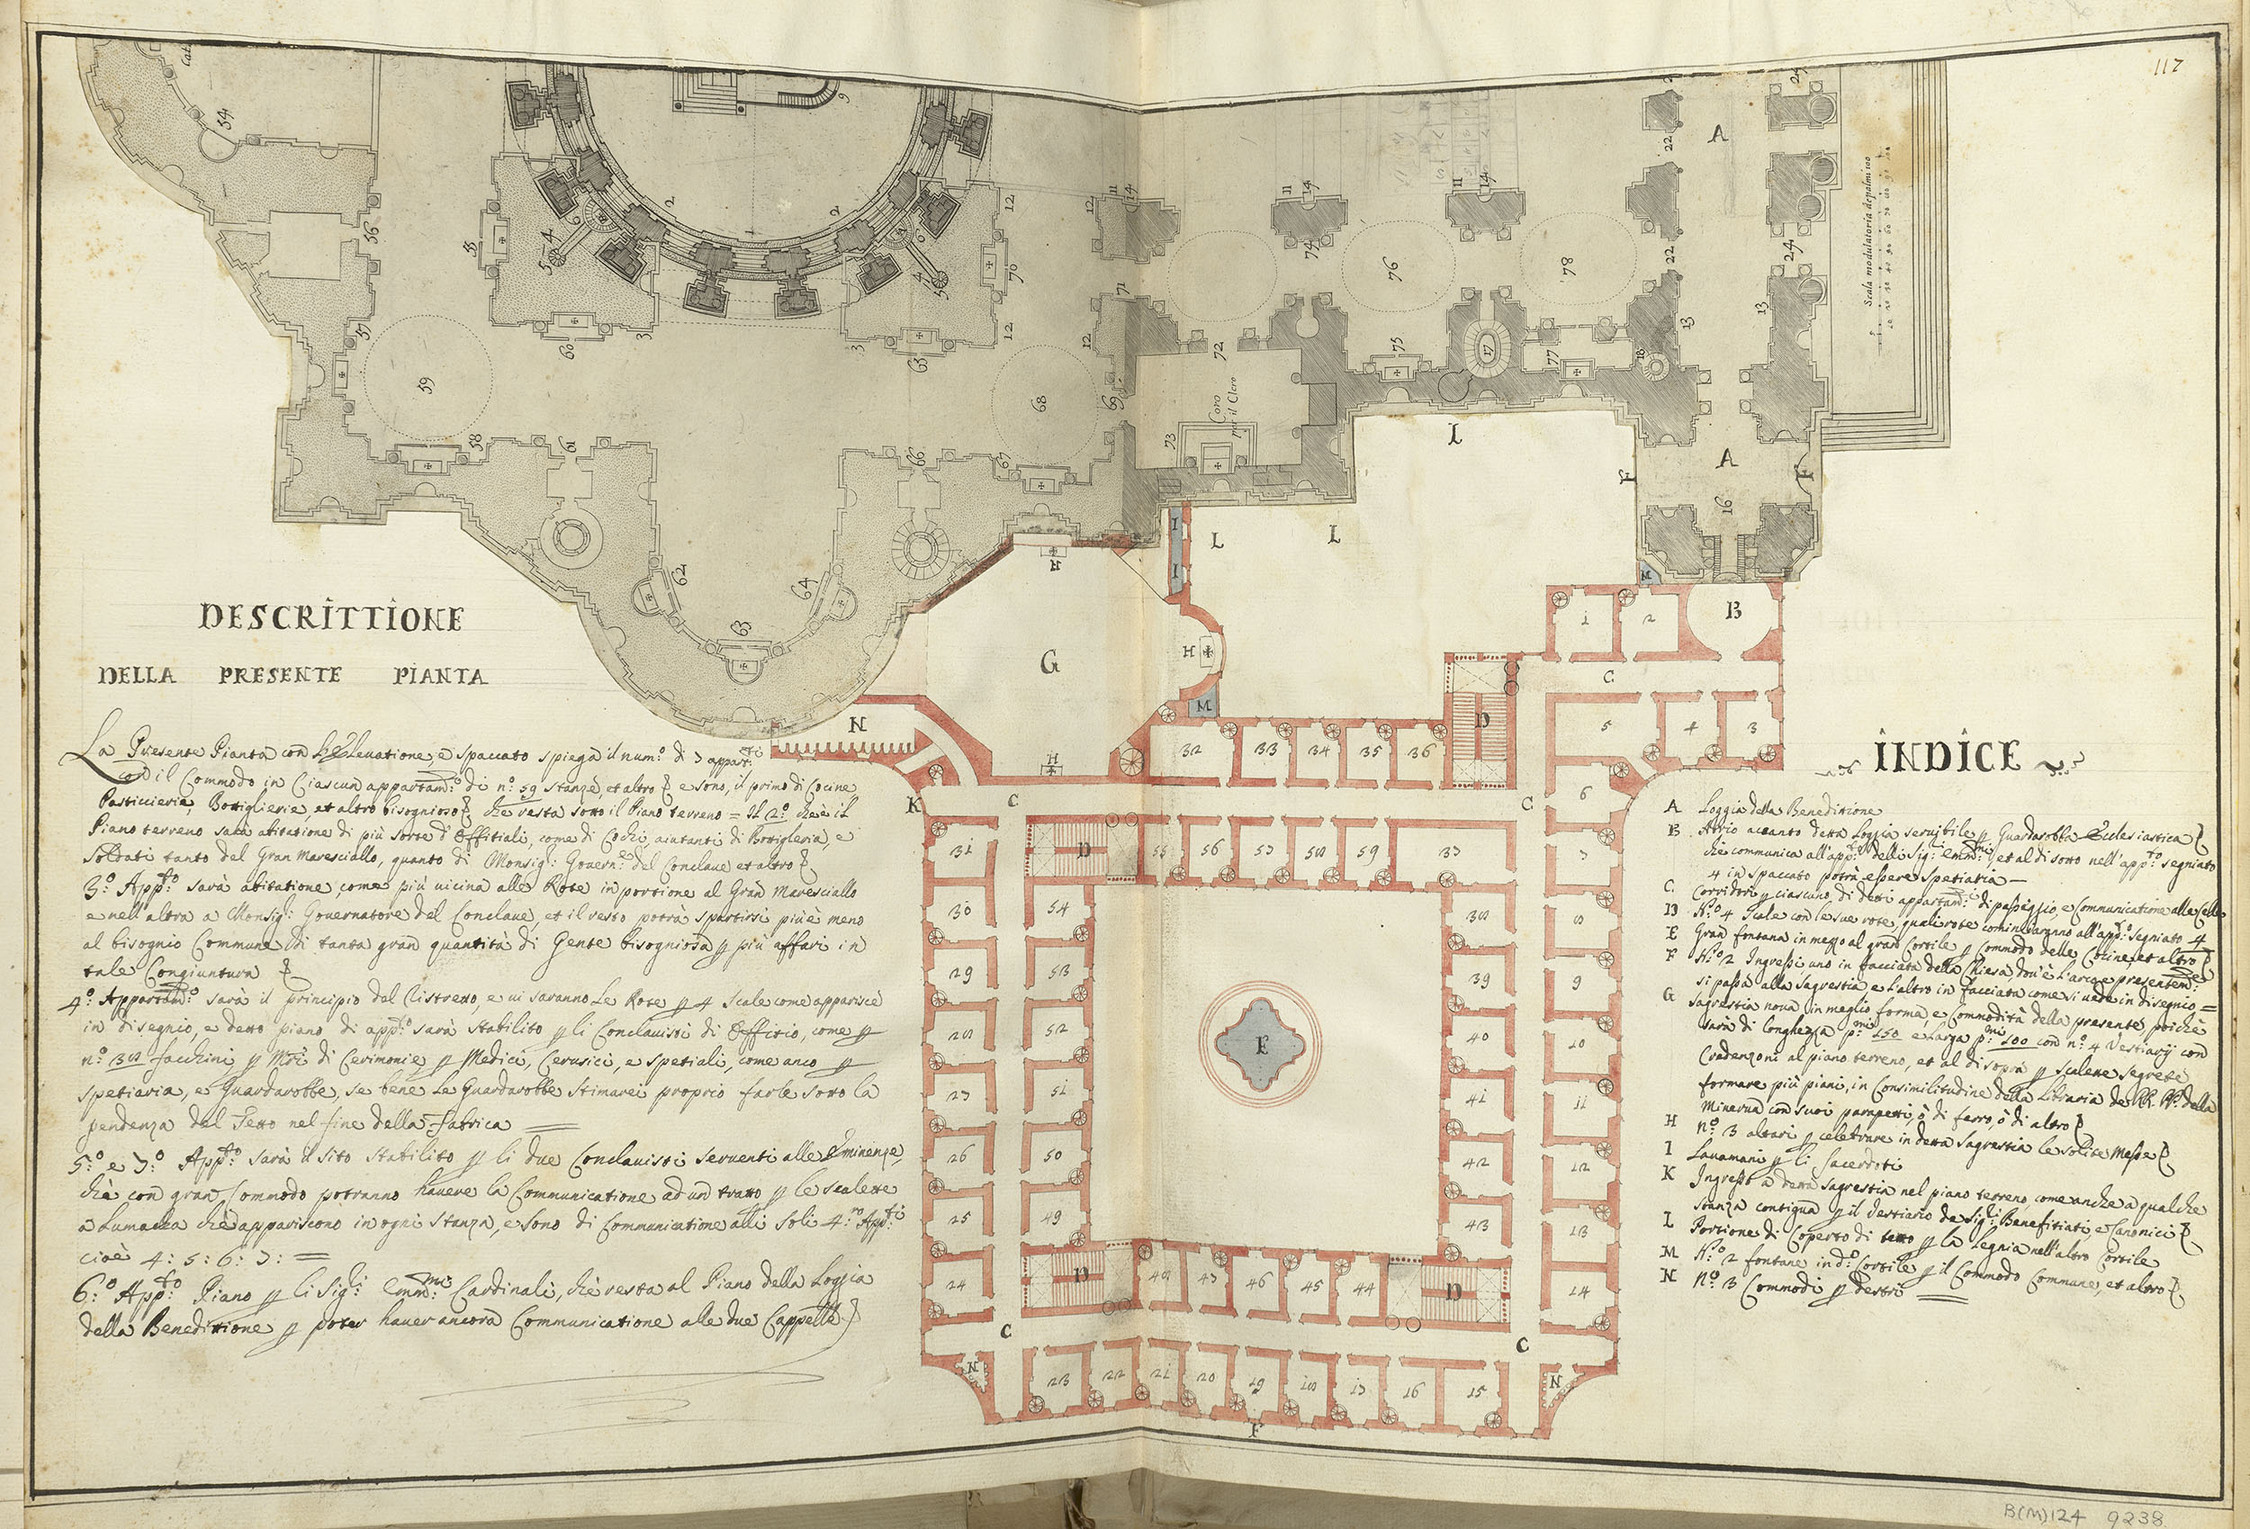 117
DESCRITTIONE
DELLA PRESENTE PIANTA
La Presente Pianta con Elevatione, e Spaccato spiega il num.º di 7 appart.ti
con il Commodo in Ciascun appartam.to di n.º 59 Stanze, et altro e sono, il primo di Cocine
Pasticieria, Bottiglierie, et altro bisognioso che resta sotto il Piano terreno = Il 2.º che è il
Piano terreno sarà abitatione di più sorte d'Offitiali, come di Cochi, aiutanti di Bottiglieria, e
Soldati tanto del Gran Maresciallo, quanto di Monsig.r Govern.re del Conclave et altro
3.º App.to sarà abitatione come più vicina alle Rote in portione al Gran Maresciallo
e nell'altra a Monsig.r Governatore del Conclave, et il resto potrà spartirsi più è meno
al bisognio Commune di tanta gran quantità di Gente bisogniosa p più affari in
tale Congiuntura
4.º Appartam.to sarà il principio del Ristretto, e vi saranno Le Rote p 4 Scale come apparisce
in disegnio, e detto piano di app.to sarà Stabilito p li Conclavisti di Offitio, come p
n.º 38 facchini p Mri di Cerimonie, p Medici, Cerusici, e Spetiali, come anco p
Spetiaria, e Guardarobbe, se bene Le Guardarobbe Stimarei proprio farle sotto la
pendenza del Tetto nel fine della Fabrica
5.º e 7.º App.to sarà il sito Stabilito p li due Conclavisti Serventi alle Eminenze,
che con gran Commodo potranno havere la Communicatione ad un tratto p le scalette
a Lumacha che appariscono in ogni Stanza, e sono di Communicatione alli Soli 4.ro App.ti
cioè 4: 5: 6: 7:
6.º App.to Piano p li Sig.ri Emm.mi Cardinali, che resta al Piano della Loggia
della Benedittione p poter haver ancora Communicatione alle due Cappelle
INDICE
A Loggia della Benedittione
B Atrio accanto detta Loggia servibile p Guardarobba Eclesiastica
che communica all'app.to delli Sig.ri Emm.mi et al di sotto nell'app.to segniato
4 in spaccato potrà essere Spetiaria
C. Corridori p ciascuno di detti appartam.ti di passeggio, e Communicatione alle Celle
D N.º 4 Scale con le sue rote, quali rote cominciaranno all'app.to segniato 4
E Gran fontana in mezzo al gran Cortile p Commodo delle Cocine, et altro
F N.º 2 Ingressi uno in facciata della Chiesa dov'è l'arco e presentem.te
si passa alla Sagrestia e l'altro in facciata come si vede in disegnio
G Sagrestia nova in meglio forma, e Commodità della presente poiche
sarà di longhezza p.mi 150 e larga p.mi 100 con n.º 4 Vestiarij con
Credenzoni al piano terreno, et al di sopra p Scalette Segrete
formare più piani, in Consimilitudine della Libraria de RR. PP. della
Minerva con suoi parapetti, ò di ferro, ò di altro
H n.º 3 altari p celebrare in detta Sagrestia le solite Messe
I Lavamani p li Sacerdoti
K Ingresso a detta Sagrestia nel piano terreno, come anche a qualche
stanza contigua p il Vestiario de Sig.ri Benefitiati e Canonici
L Portione di Coperto di tetto p la Legnia nell'altro Cortile
M N.º 2 fontane in d.º Cortile p il Commodo Commune, et altro
N N.º 3 Commodi p destri
Scala modulatoria de palmi 100
Coro
per il Clero
A
A
B
C
C
C
C
C
D
D
D
D
E
F
F
F
G
H
H
H
I
I
K
L
L
L
M
M
N
N
N
1
2
3
4
5
6
7
8
9
10
11
12
13
14
15
16
17
18
19
20
21
22
23
24
25
26
27
28
29
30
31
32
33
34
35
36
37
38
39
40
41
42
43
44
45
46
47
48
49
50
51
52
53
54
55
56
57
58
59
54
55
56
57
58
59
60
61
62
63
64
65
66
67
68
69
70
71
72
73
74
75
76
77
78
B(M)124 9238